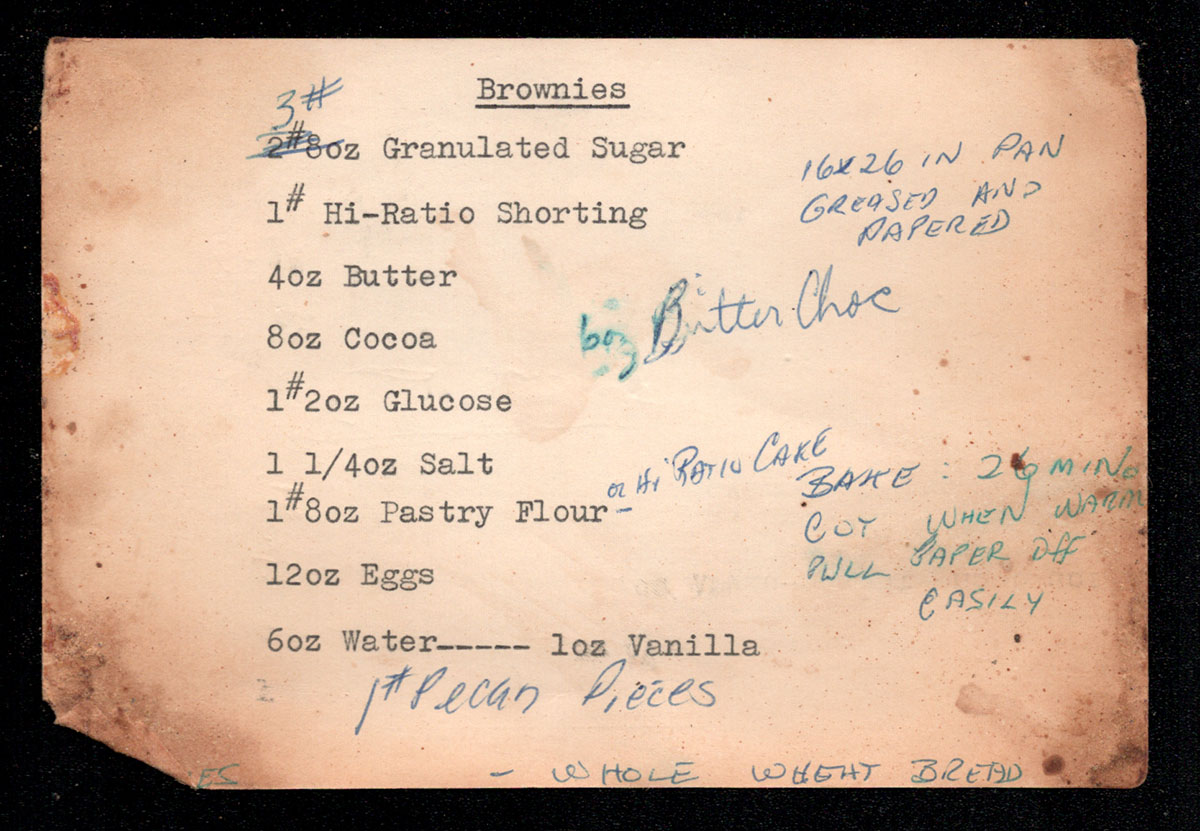 Brownies
3#
2#8oz Granulated Sugar
16x26 IN PAN
GREASED AND
PAPERED
1# Hi-Ratio Shorting
4oz Butter
6oz Bitter Choc
8oz Cocoa
1#2oz Glucose
1 1/4oz Salt
or Hi RATIO CAKE
1#8oz Pastry Flour
BAKE : MIN
CUT WHEN WARM
PULL PAPER OFF
EASILY
12oz Eggs
6oz Water----- 1oz Vanilla
1# Pecan Pieces
ES - WHOLE WHEAT BREAD